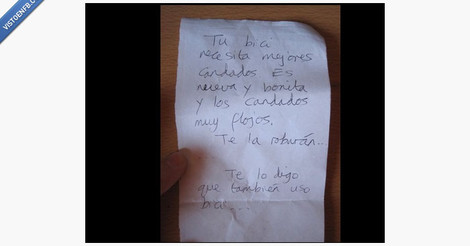 VISTOENFB.COM
Tu bici
necesita mejores
candados Es
nueva y bonita
y los candados
muy flojos.
Te la robarán..
Te lo digo
que también uso
bici...